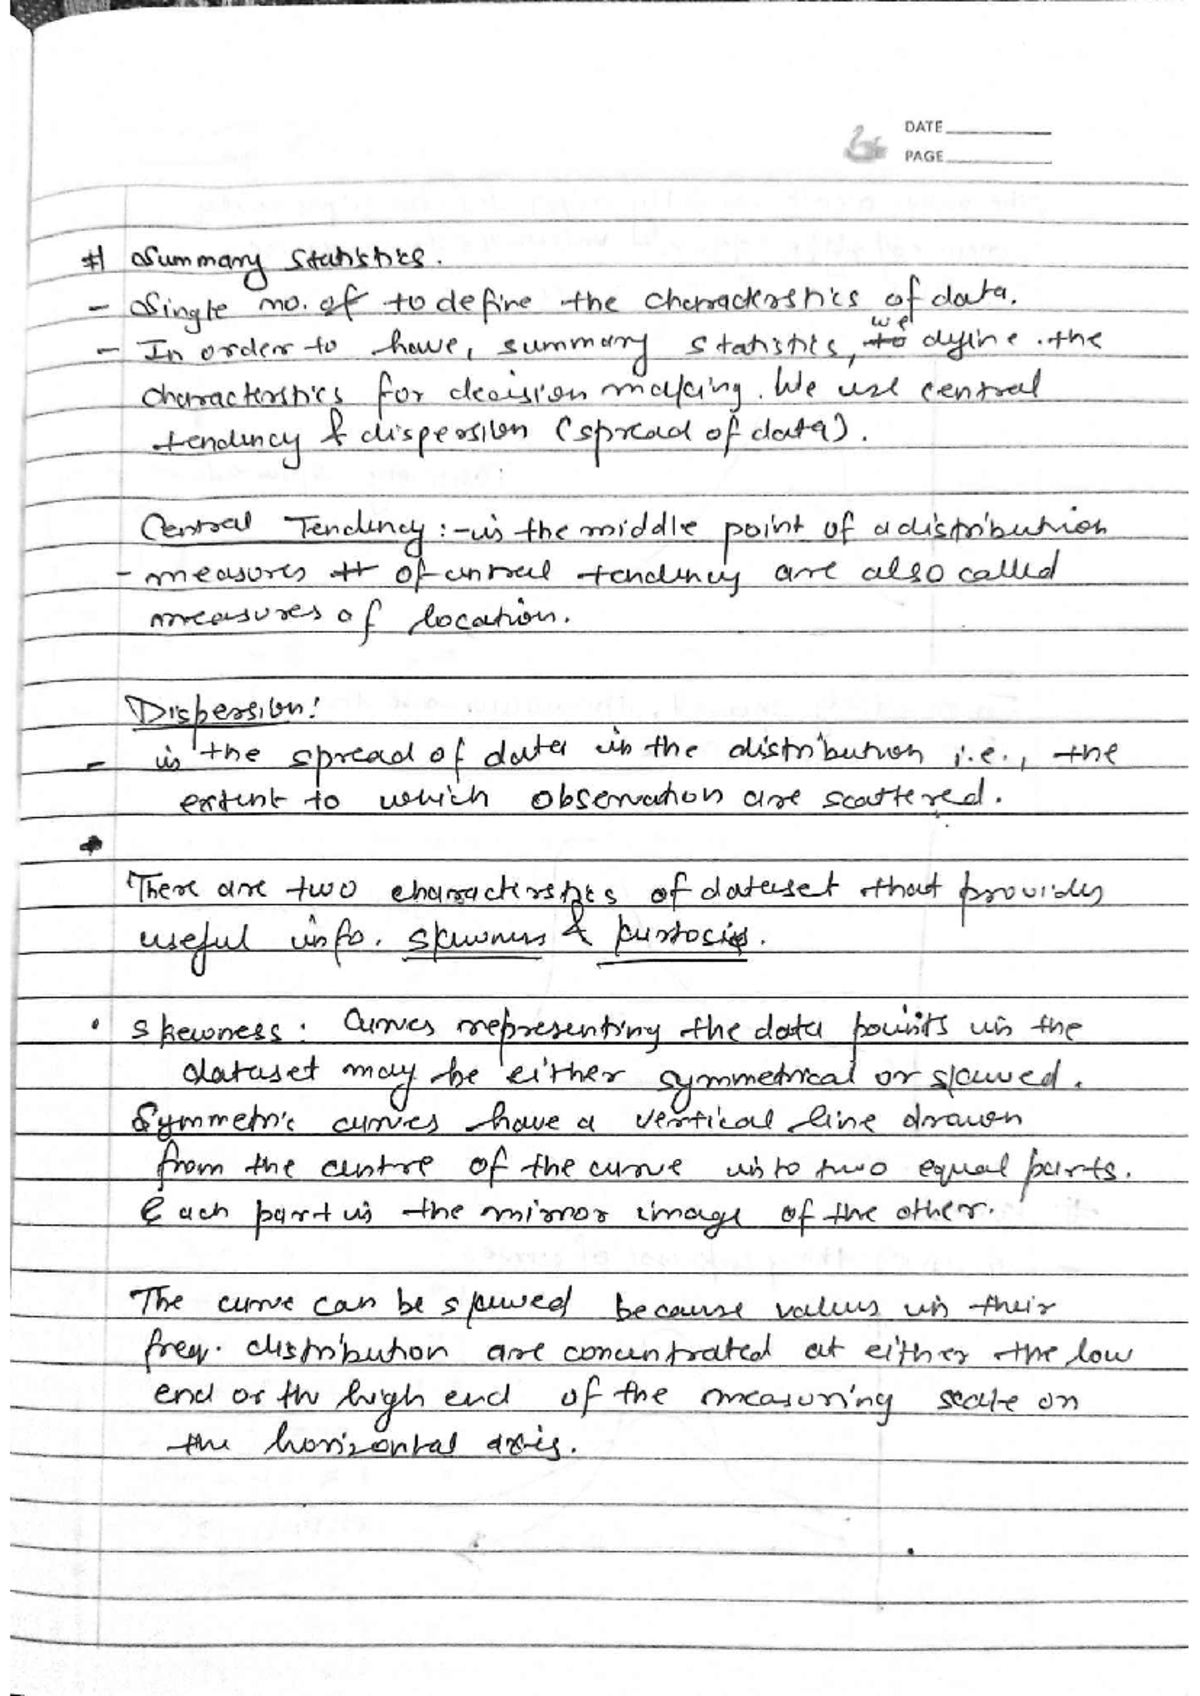 DATE
PAGE
# Summary Statistics.
- Single no. of to define the characterstics of data.
we
- In order to have, summary statistics, to define the
characterstics for decision making. We use central
tendency & dispersion (spread of data).
Central Tendency :- is the middle point of a distribution
- measures of central tendency are also called
measures of location.
Dispersion:
- is the spread of data in the distribution i.e., the
extent to which observation are scattered.
There are two characterstics of dataset that provides
useful info. skewness & kurtosis.
• Skewness: Curves representing the data points in the
dataset may be either symmetrical or skewed.
Symmetric curves have a vertical line drawn
from the centre of the curve into two equal parts.
Each part is the mirror image of the other.
The curve can be skewed because values in their
freq. distribution are concentrated at either the low
end or the high end of the measuring scale on
the horizontal axis.